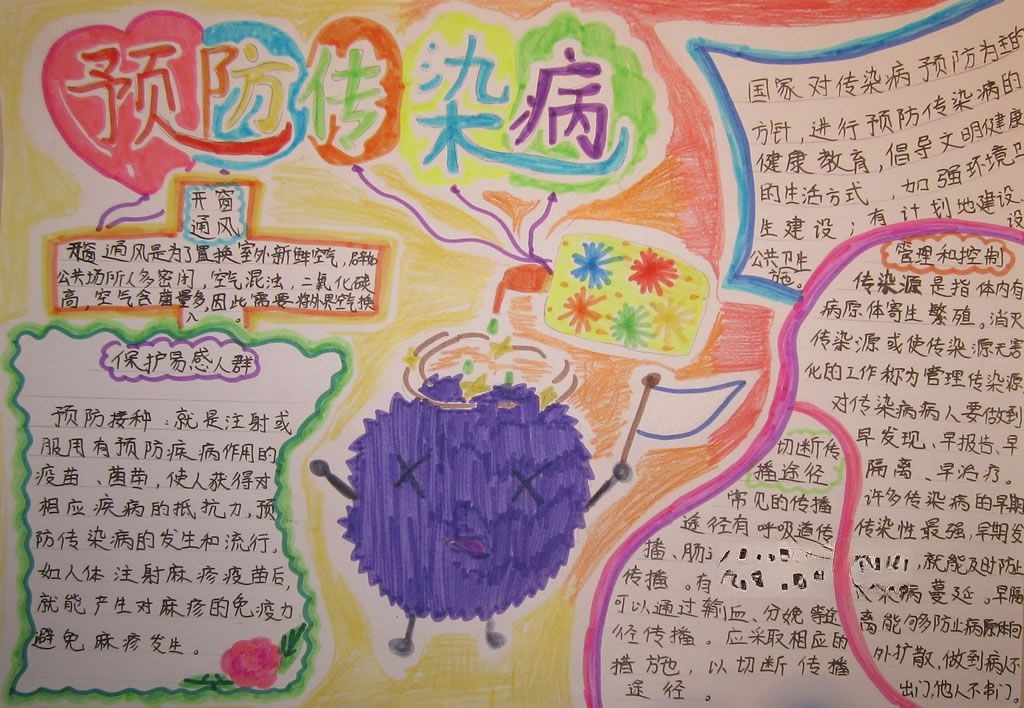 预防传染病
开窗
通风
开窗通风是为了置换室外新鲜空气,
公共场所人多密闭,空气混浊,二氧化碳
高,空气含菌量多,因此需要将外界空气换
入。
保护易感人群
预防接种:就是注射或
服用有预防疾病作用的
疫苗、菌苗,使人获得对
相应疾病的抵抗力,预
防传染病的发生和流行。
如人体注射麻疹疫苗后,
就能产生对麻疹的免疫力
避免麻疹发生。
国家对传染病预防为主的
方针,进行预防传染病的
健康教育,倡导文明健康
的生活方式,加强环境卫
生建设;有计划地建设
公共卫生设
施。
管理和控制
传染源是指体内有
病原体寄生繁殖。消灭
传染源或使传染源无害
化的工作称为管理传染源
对传染病病人要做到
早发现、早报告、早
隔离、早治疗。
许多传染病的早期
传染性最强,早期发
,就能及时防止
染病蔓延。早隔
离能够防止病原体向
外扩散,做到病人不
出门,他人不串门。
切断传
播途径
常见的传播
途径有呼吸道传
播、肠
传播。有
可以通过输血、分娩等途
径传播。应采取相应的
措施,以切断传播
途径。